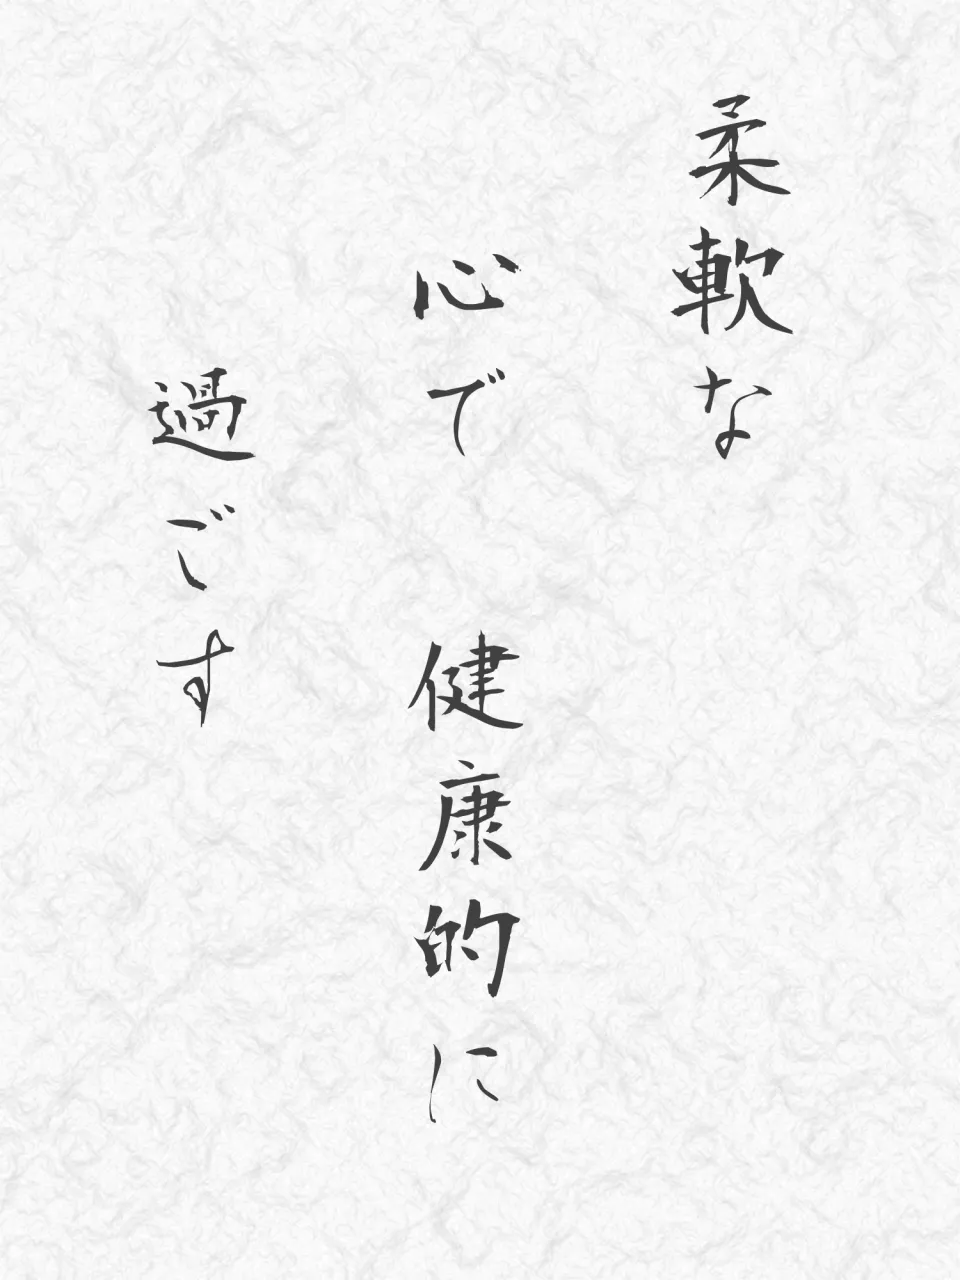 柔軟な
心で　健康的に
過ごす